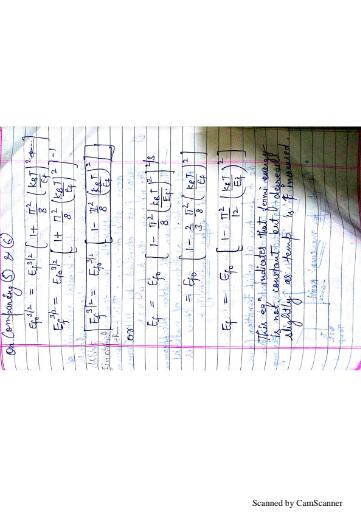 On Comparing (5) & (6)
Ef0^3/2 = Ef^3/2 [1 + π²/8 (kBT/Ef)² + ----]
Ef^3/2 = Ef0^3/2 [1 + π²/8 (kBT/Ef)²]^-1
Ef^3/2 = Ef0^3/2 [1 - π²/8 (kBT/Ef)²]
or
Ef = Ef0 [1 - π²/8 (kBT/Ef)²]^2/3
= Ef0 [1 - 2/3 π²/8 (kBT/Ef)²]
Ef = Ef0 [1 - π²/12 (kBT/Ef)²]
This eqn indicates that fermi energy
is not constant but decreases
slightly as temp is increased.
Scanned by CamScanner